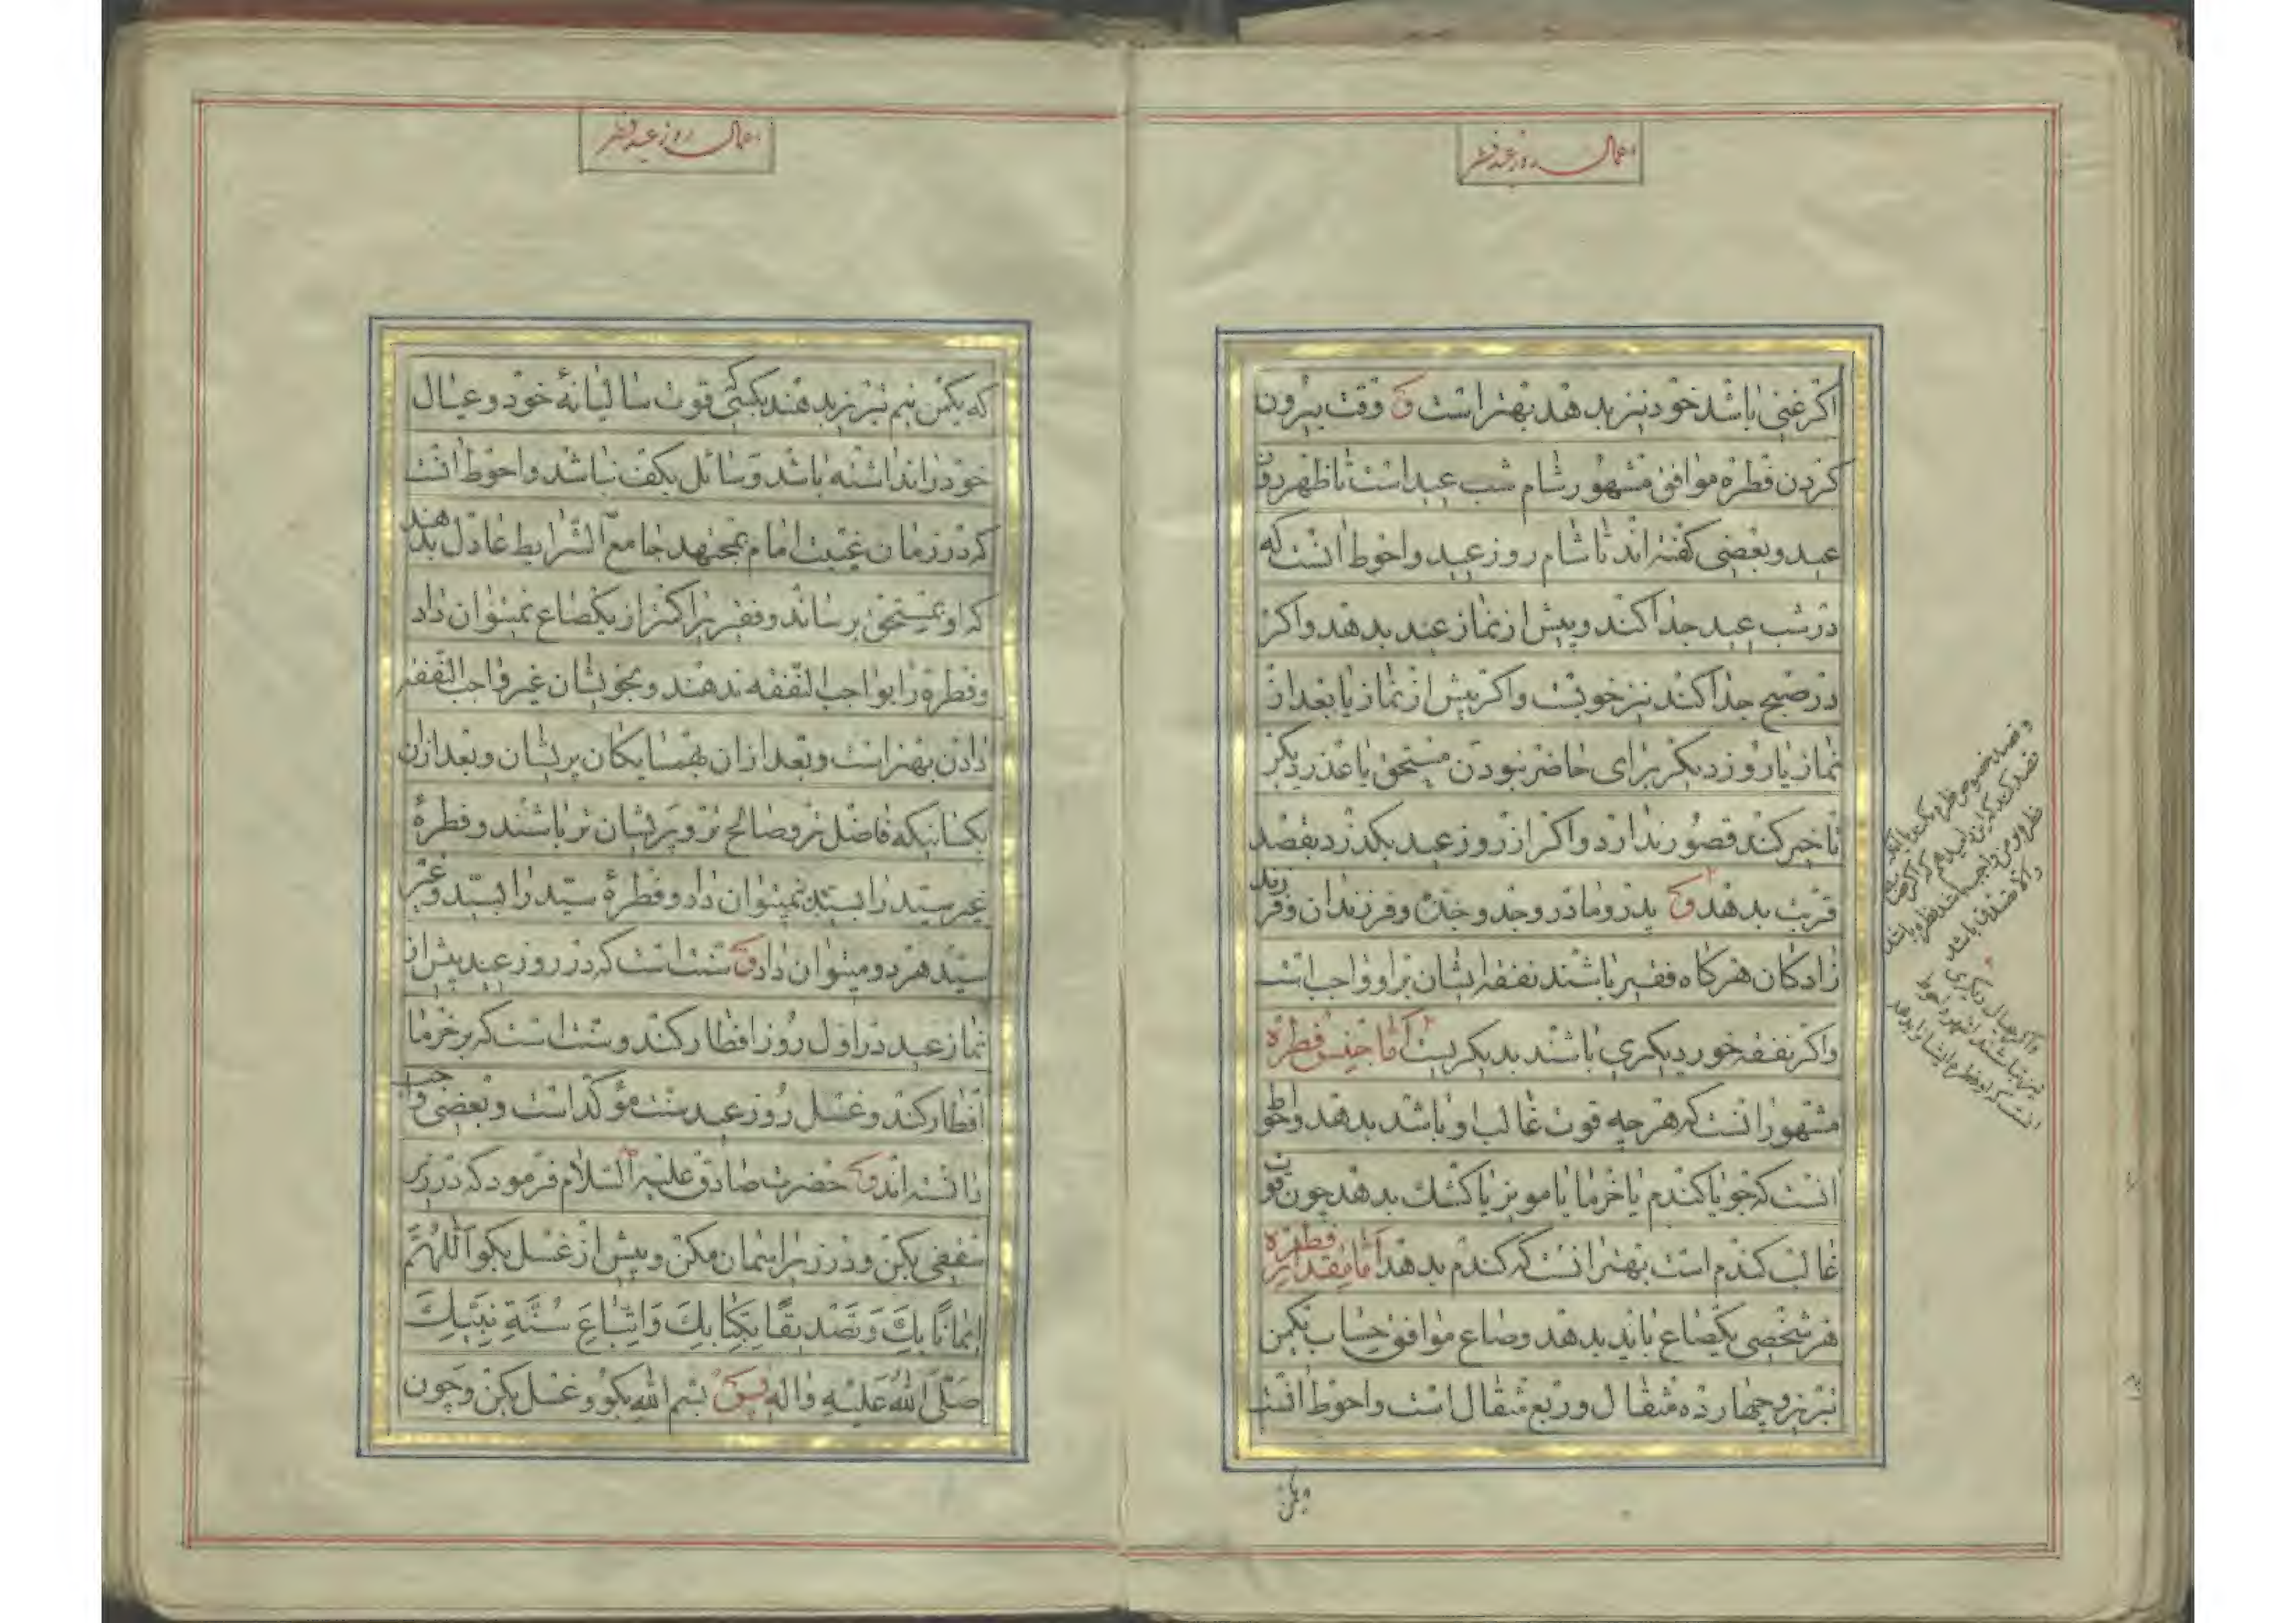 اعمال روز عید فطر
اکر غنی باشد خود نیز بدهد بهتر است و وقت بیرون
کردن فطره موافق مشهور شام شب عید است تا ظهر روز
عید و بعضی کفته اند تا شام روز عید و احوط انست که
در شب عید جدا کند و پیش از نماز عید بدهد و اکر
در صبح جدا کند نیز خوبست و اکر پیش از نماز یا بعد از
نماز یا روز دیکر برای حاضر نبودن مستحق یا عذر دیکر
تاخیر کند قصور ندارد و اکر از روز عید بکذرد بقصد
قربت بدهد و پدر و مادر و جد و جده و فرزندان و فرزند
زادکان هرکاه فقیر باشند نفقه ایشان بر او واجب است
و اکر نفقه خور دیکری باشند بدیکریست اما جنس فطره
مشهور انست که هر چه قوت غالب او باشد بدهد و احوط
انست که جو یا کندم یا خرما یا مویز یا کشک بدهد چون قوت
غالب کندم است بهتر انست که کندم بدهد اما مقدار فطره
هر شخصی یکصاع باید بدهد و صاع موافق حساب یکمن
تبریز و چهارده مثقال و ربع مثقال است و احوط انست
اعمال روز عید فطر
که یکمن نیم تبریز بدهند بکسی قوت سالیانهٔ خود و عیال
خود را نداشته باشد و سائل بکف نباشد و احوط انست
که در زمان غیبت امام بمجتهد جامع الشرایط عادل بدهند
که او بمستحق برساند و فقیر را کمتر از یکصاع نمیتوان داد
و فطره را بواجب النفقه ندهند و بخویشان غیر واجب النفقه
دادن بهتر است و بعد از ان بهمسایکان پریشان و بعد از ان
بکسانیکه فاضل تر و صالح تر و پریشان تر باشند و فطرهٔ
غیر سید را بسید نمیتوان داد و فطرهٔ سید را بسید و غیر
سید هر دو میتوان داد و سنت است که در روز عید پیش از
نماز عید در اول روز افطار کند و سنت است که بر خرما
افطار کند و غسل روز عید سنت مؤکد است و بعضی واجب
دانسته اند و حضرت صادق علیه السلام فرمود که در زیر
سقفی بکن و در زیر اسمان مکن و پیش از غسل بکو اَللّٰهُمَّ
اِیمَانًا بِكَ وَ تَصْدِیقًا بِكِتَابِكَ وَ اتِّبَاعَ سُنَّةِ نَبِیِّكَ
صَلَّی اللهُ عَلَیْهِ وَ اٰلِهِ پس بسم الله بکو و غسل بکن و چون